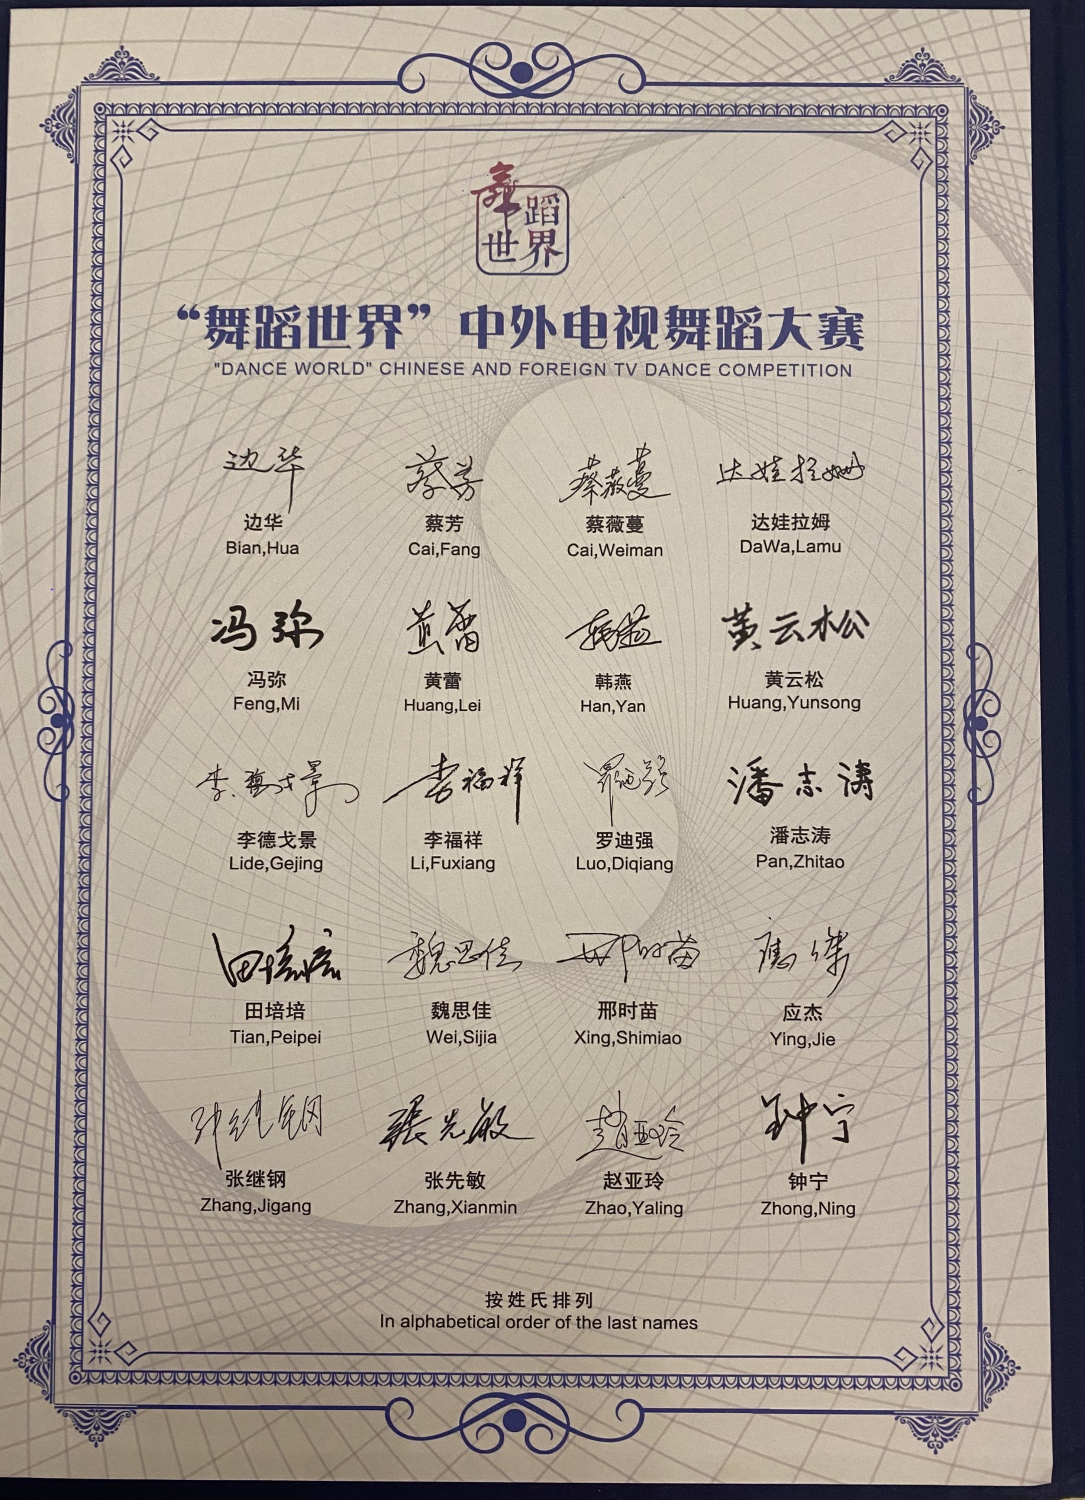 舞蹈
世界
“舞蹈世界”中外电视舞蹈大赛
"DANCE WORLD" CHINESE AND FOREIGN TV DANCE COMPETITION
边华 蔡芳 蔡薇蔓 达娃拉姆
边华 蔡芳 蔡薇蔓 达娃拉姆
Bian,Hua Cai,Fang Cai,Weiman DaWa,Lamu
冯弥 黄蕾 韩燕 黄云松
冯弥 黄蕾 韩燕 黄云松
Feng,Mi Huang,Lei Han,Yan Huang,Yunsong
李德戈景 李福祥 罗迪强 潘志涛
李德戈景 李福祥 罗迪强 潘志涛
Lide,Gejing Li,Fuxiang Luo,Diqiang Pan,Zhitao
田培培 魏思佳 邢时苗 应杰
田培培 魏思佳 邢时苗 应杰
Tian,Peipei Wei,Sijia Xing,Shimiao Ying,Jie
张继钢 張先敏 趙亚玲 钟宁
张继钢 张先敏 赵亚玲 钟宁
Zhang,Jigang Zhang,Xianmin Zhao,Yaling Zhong,Ning
按姓氏排列
In alphabetical order of the last names